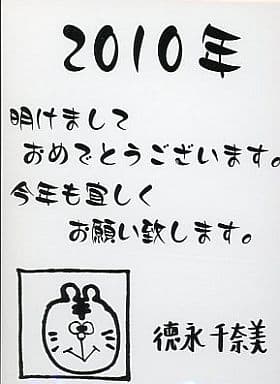 2010年
明けまして
おめでとうございます。
今年も宜しく
お願い致します。
徳永千奈美